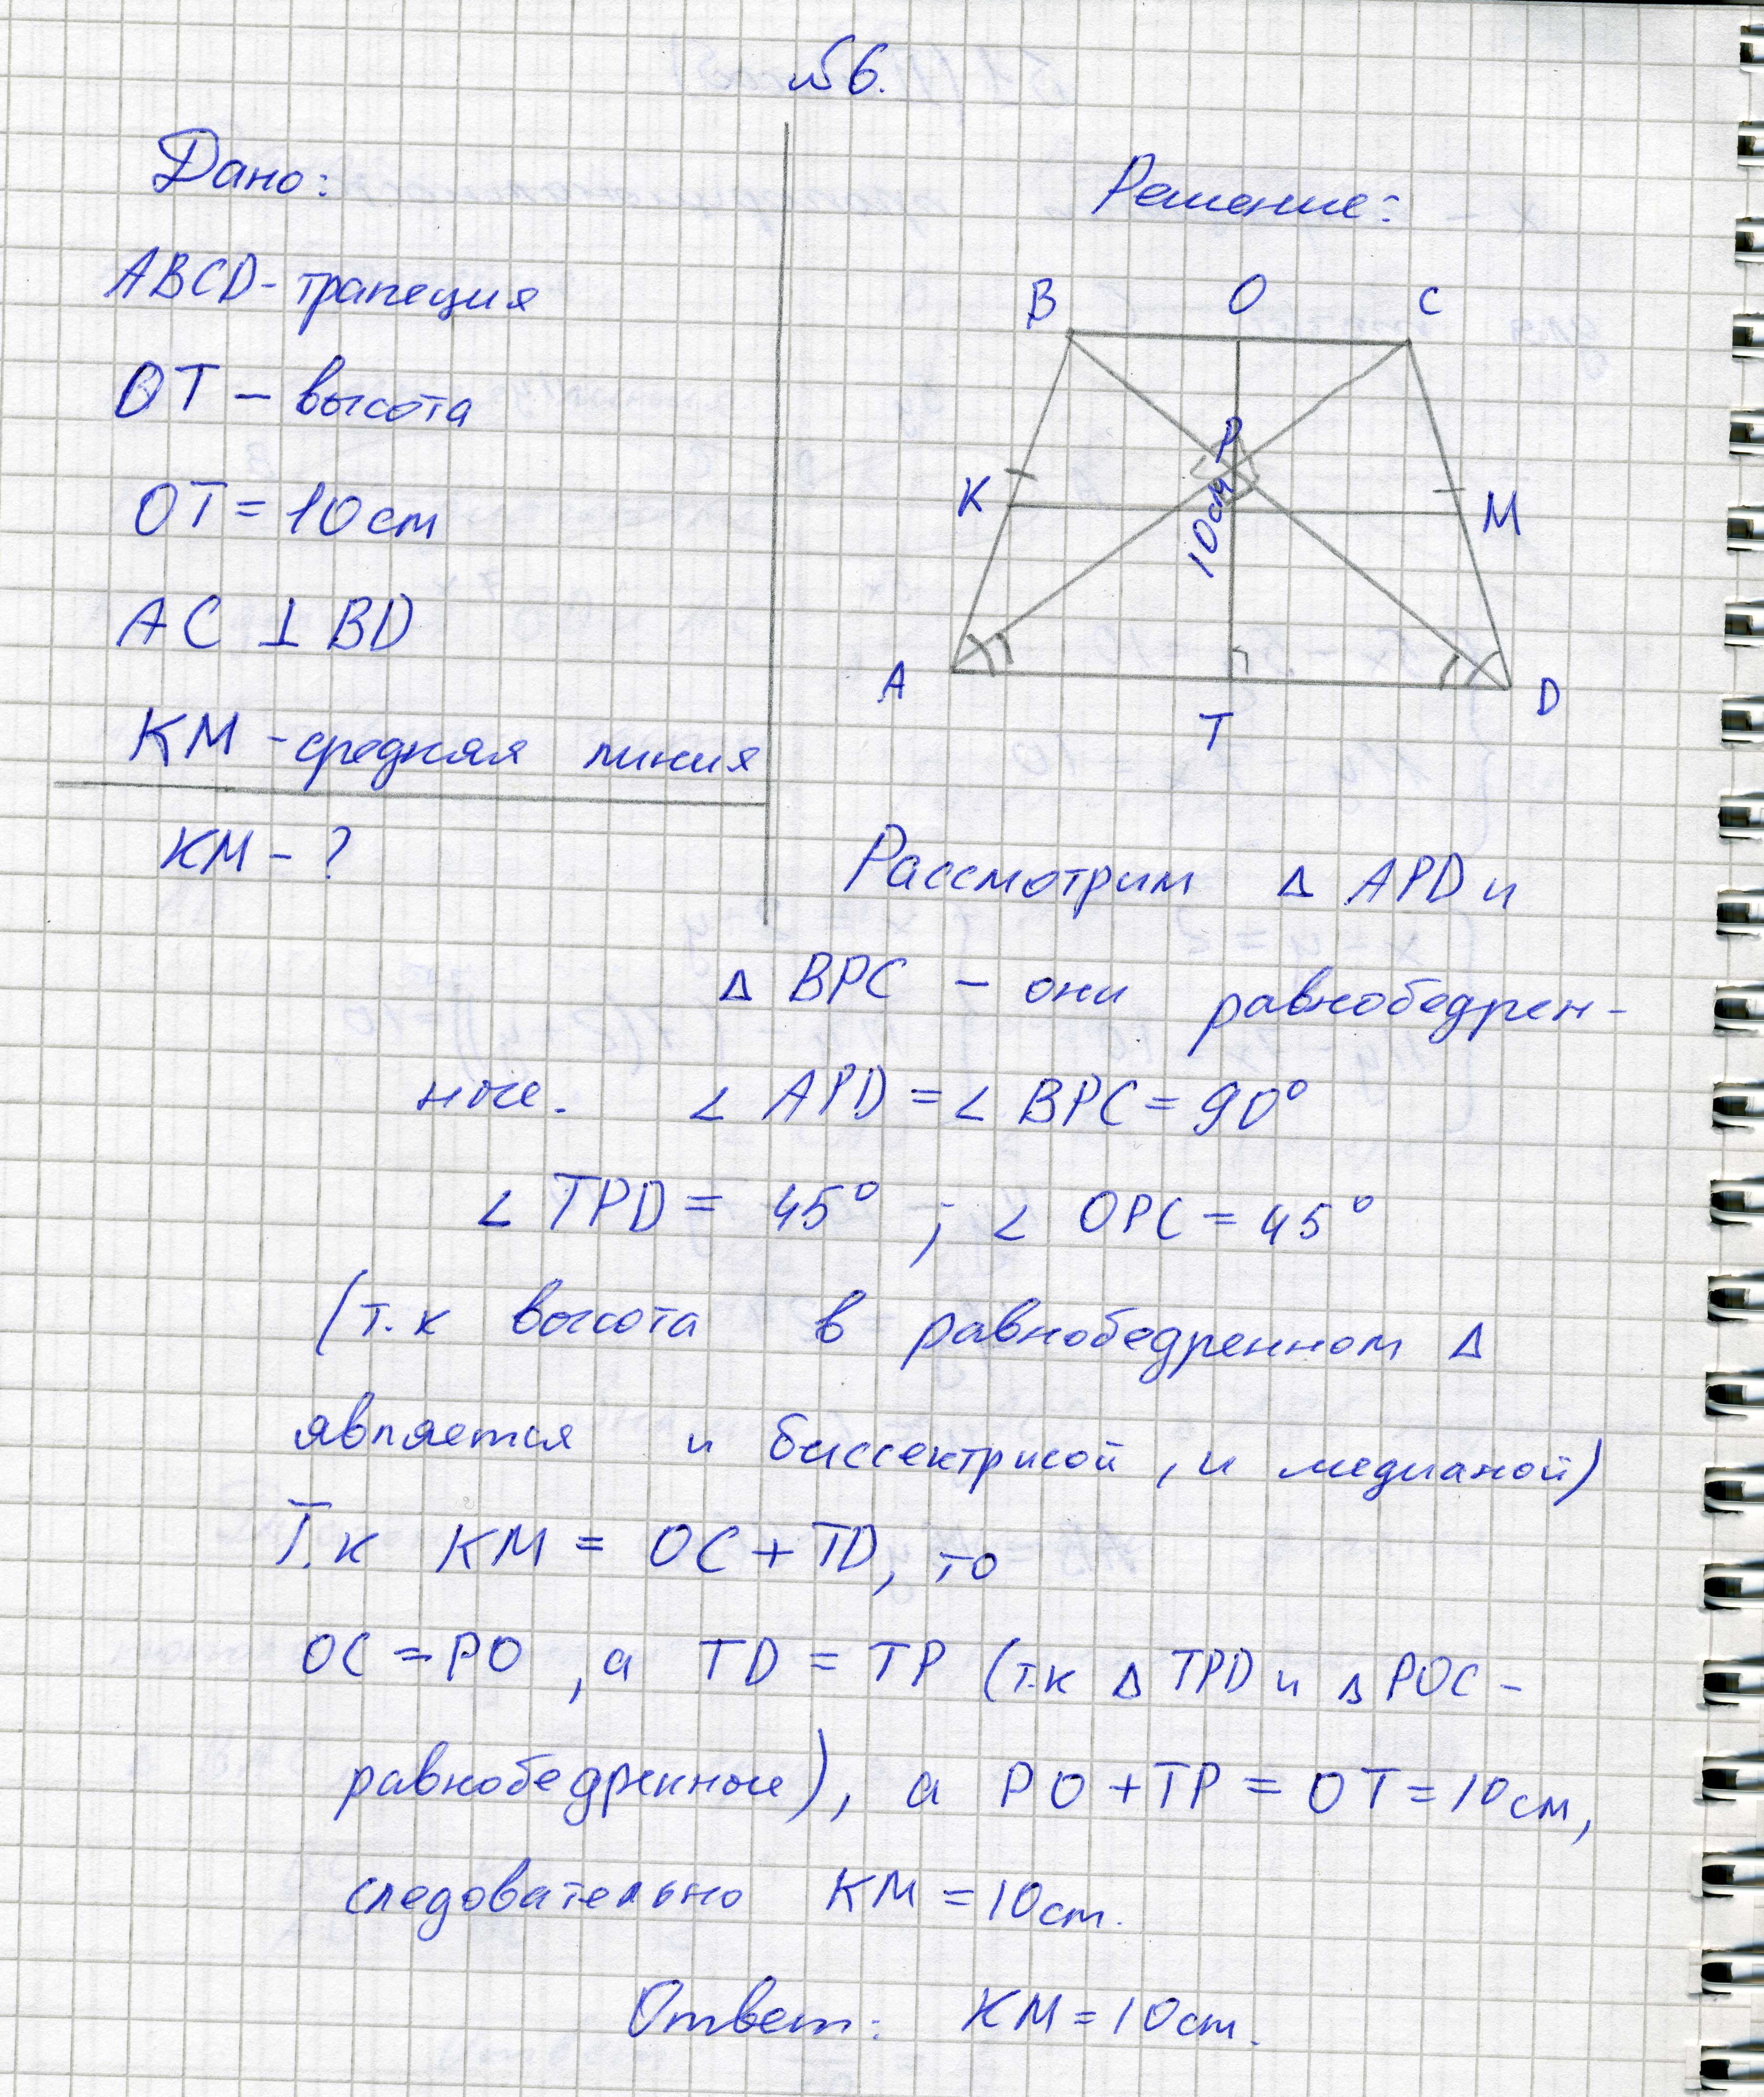 №6.
Дано:
ABCD - трапеция
OT - высота
OT = 10 см
AC ⊥ BD
KM - средняя линия
KM - ?
Решение:
B O C
P
K M
10см
A D
T
Рассмотрим Δ APD и
Δ BPC - они равнобедрен-
ные. ∠ APD = ∠ BPC = 90°
∠ TPD = 45° ; ∠ OPC = 45°
(т.к высота в равнобедренном Δ
является и биссектрисой, и медианой)
Т.к KM = OC + TD, то
OC = PO, а TD = TP (т.к Δ TPD и Δ POC -
равнобедренные), а PO + TP = OT = 10 см,
следовательно KM = 10 см.
Ответ: KM = 10 см.